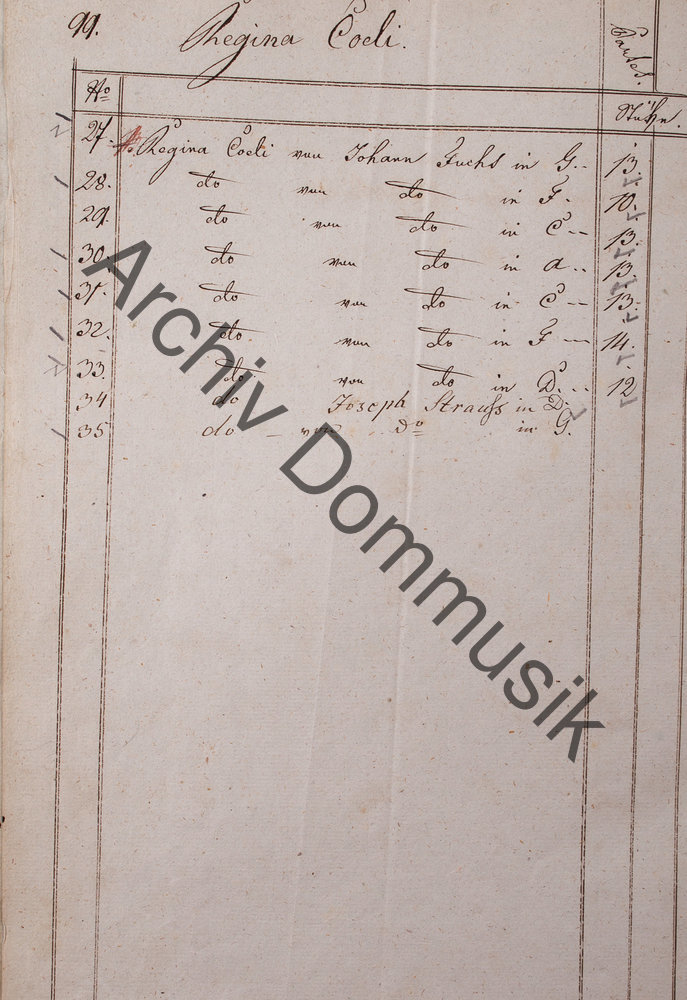 99.
Regina Coeli.
Partes.
No
Stük.
27. Regina Coeli von Johann Fuchs in G.. 13.
28. do von do in F. 10.
29. do von do in C -- 13.
30. do von do in a.. 13.
31. do von do in C -- 13.
32. do. von do in F --- 14.
33. do von do in D. -- 12
34 do Joseph Strauss in D.
35 do - von Do in G.
Archiv Dommusik